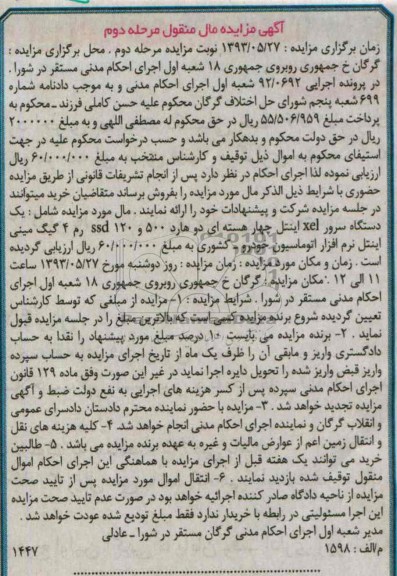 آگهی مزایده مال منقول مرحله دوم
زمان برگزاری مزایده : ۱۳۹۳/۰۵/۲۷ نوبت مزایده مرحله دوم . محل برگزاری مزایده :
گرگان خ جمهوری روبروی جمهوری ۱۸ شعبه اول اجرای احکام مدنی مستقر در شورا .
در پرونده اجرایی ۹۲/۰۶۹۲ شعبه اول اجرای احکام مدنی و به موجب دادنامه شماره
۶۹۹ شعبه پنجم شورای حل اختلاف گرگان محکوم علیه حسن کاملی فرزند ـ محکوم به
پرداخت مبلغ ۵۵/۵۰۶/۹۵۹ ریال در حق محکوم له مصطفی اللهی و به مبلغ ۲۰۰۰۰۰۰
ریال در حق دولت محکوم و بدهکار می باشد و حسب درخواست محکوم علیه در جهت
استیفای محکوم به اموال ذیل توقیف و کارشناس منتخب به مبلغ ۶۰/۰۰۰/۰۰۰ ریال
ارزیابی نموده لذا اجرای احکام در نظر دارد پس از انجام تشریفات قانونی از طریق مزایده
حضوری با شرایط ذیل الذکر مال مورد مزایده را بفروش برساند متقاضیان خرید میتوانند
در جلسه مزایده شرکت و پیشنهادات خود را ارائه نمایند . مال مورد مزایده شامل : یک
دستگاه سرور xel اینتل چهار هسته ای دو هارد ۵۰۰ و ۱۲۰ ssd رم ۴ گیگ مینی
اینتل نرم افزار اتوماسیون خودرو ـ کشوری به مبلغ ۶۰/۰۰۰/۰۰۰ ریال ارزیابی گردیده
است . زمان و مکان مورد مزایده : زمان مزایده : روز دوشنبه مورخ ۱۳۹۳/۰۵/۲۷ ساعت
۱۱ الی ۱۲ . مکان مزایده : گرگان خ جمهوری روبروی جمهوری ۱۸ شعبه اول اجرای
احکام مدنی مستقر در شورا . شرایط مزایده : ۱- مزایده از مبلغی که توسط کارشناس
تعیین گردیده شروع برنده مزایده کسی است که بالاترین مبلغ را در جلسه مزایده قبول
نماید . ۲- برنده مزایده می بایست ۱۰ درصد مبلغ مورد پیشنهاد را نقدا به حساب
دادگستری واریز و مابقی آن را ظرف یک ماه از تاریخ اجرای مزایده به حساب سپرده
واریز قبض واریز شده را تحویل دایره اجرا نماید در غیر این صورت وفق ماده ۱۲۹ قانون
اجرای احکام مدنی سپرده پس از کسر هزینه های اجرایی به نفع دولت ضبط و آگهی
مزایده تجدید خواهد شد . ۳- مزایده با حضور نماینده محترم دادستان دادسرای عمومی
و انقلاب گرگان و نماینده اجرای احکام مدنی انجام خواهد شد. ۴- کلیه هزینه های نقل
و انتقال زمین اعم از عوارض مالیات و غیره به عهده برنده مزایده می باشد . ۵- طالبین
خرید می توانند یک هفته قبل از اجرای مزایده با هماهنگی این اجرای احکام اموال
منقول توقیف شده بازدید نمایند . ۶- انتقال اموال مورد مزایده پس از تایید صحت
مزایده از ناحیه دادگاه صادر کننده اجرائیه خواهد بود در صورت عدم تایید صحت مزایده
این اجرا مسئولیتی در رابطه با خریدار ندارد فقط مبلغ تودیع شده عودت خواهد شد .
مدیر شعبه اول اجرای احکام مدنی گرگان مستقر در شورا ـ عادلی
م/الف : ۱۵۹۸ ۱۴۴۷